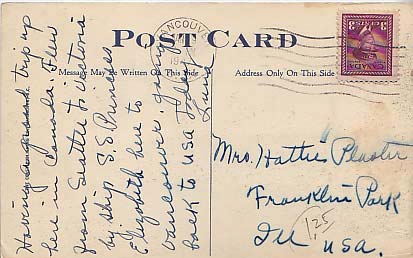 POST CARD
Message May be Written On This Side
Address Only On This Side
VANCOUVER
CANADA
3 3
Having a grand trip up
here in Canada. Flew
from Seattle to Victoria
by ship S.S. Princess
Elizabeth here to
Vancouver. going
back to USA today
Mrs. Hattie Plaster
Franklin Park
Ill
USA.
1.25